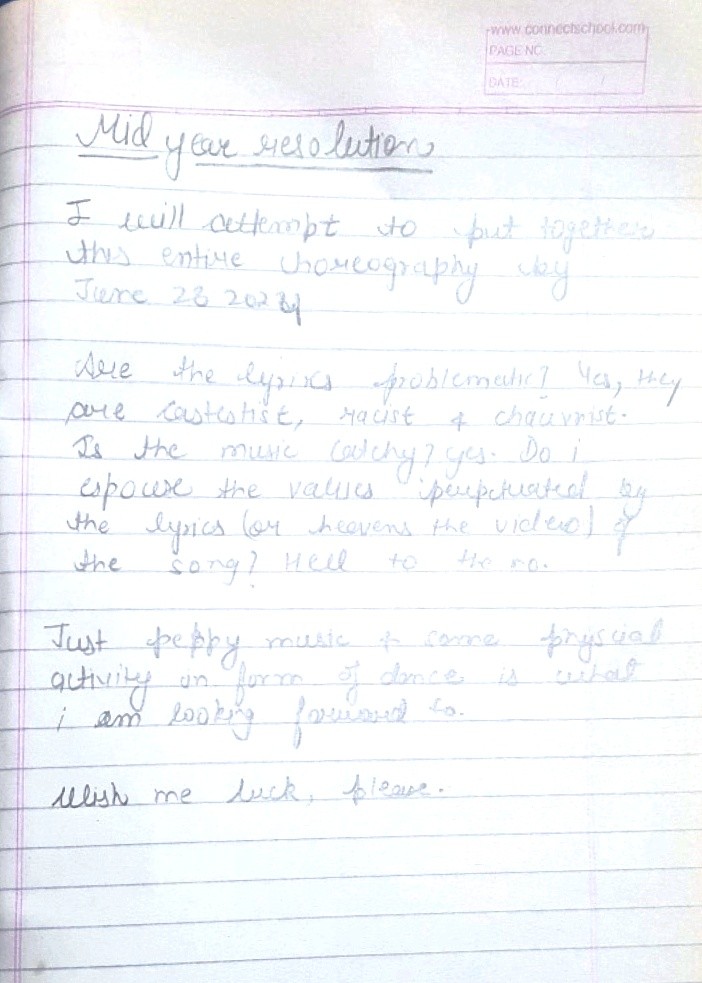 www.connectschool.com
PAGE NO.
DATE: / /
Mid year resolution
I will attempt to put together
this entire choreography by
June 23 2024
Are the lyrics problematic? Yes, they
are castestist, racist & chauvnist.
Is the music catchy? yes. Do i
espouse the values perpetuated by
the lyrics (or heavens the video) of
the song? Hell to the no.
Just peppy music + some physcial
activity in form of dance is what
i am looking forward to.
Wish me luck, please.